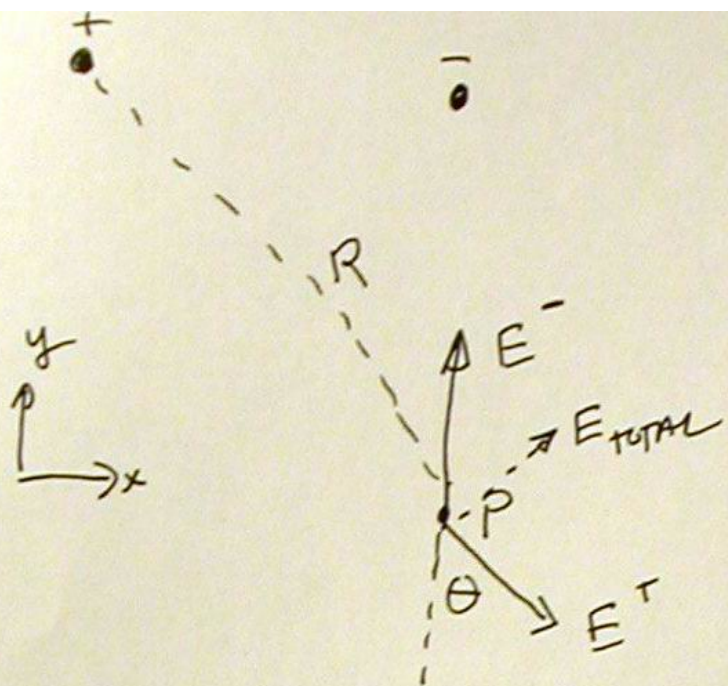 +
-
R
y
x
E⁻
E TOTAL
P
θ
E⁺